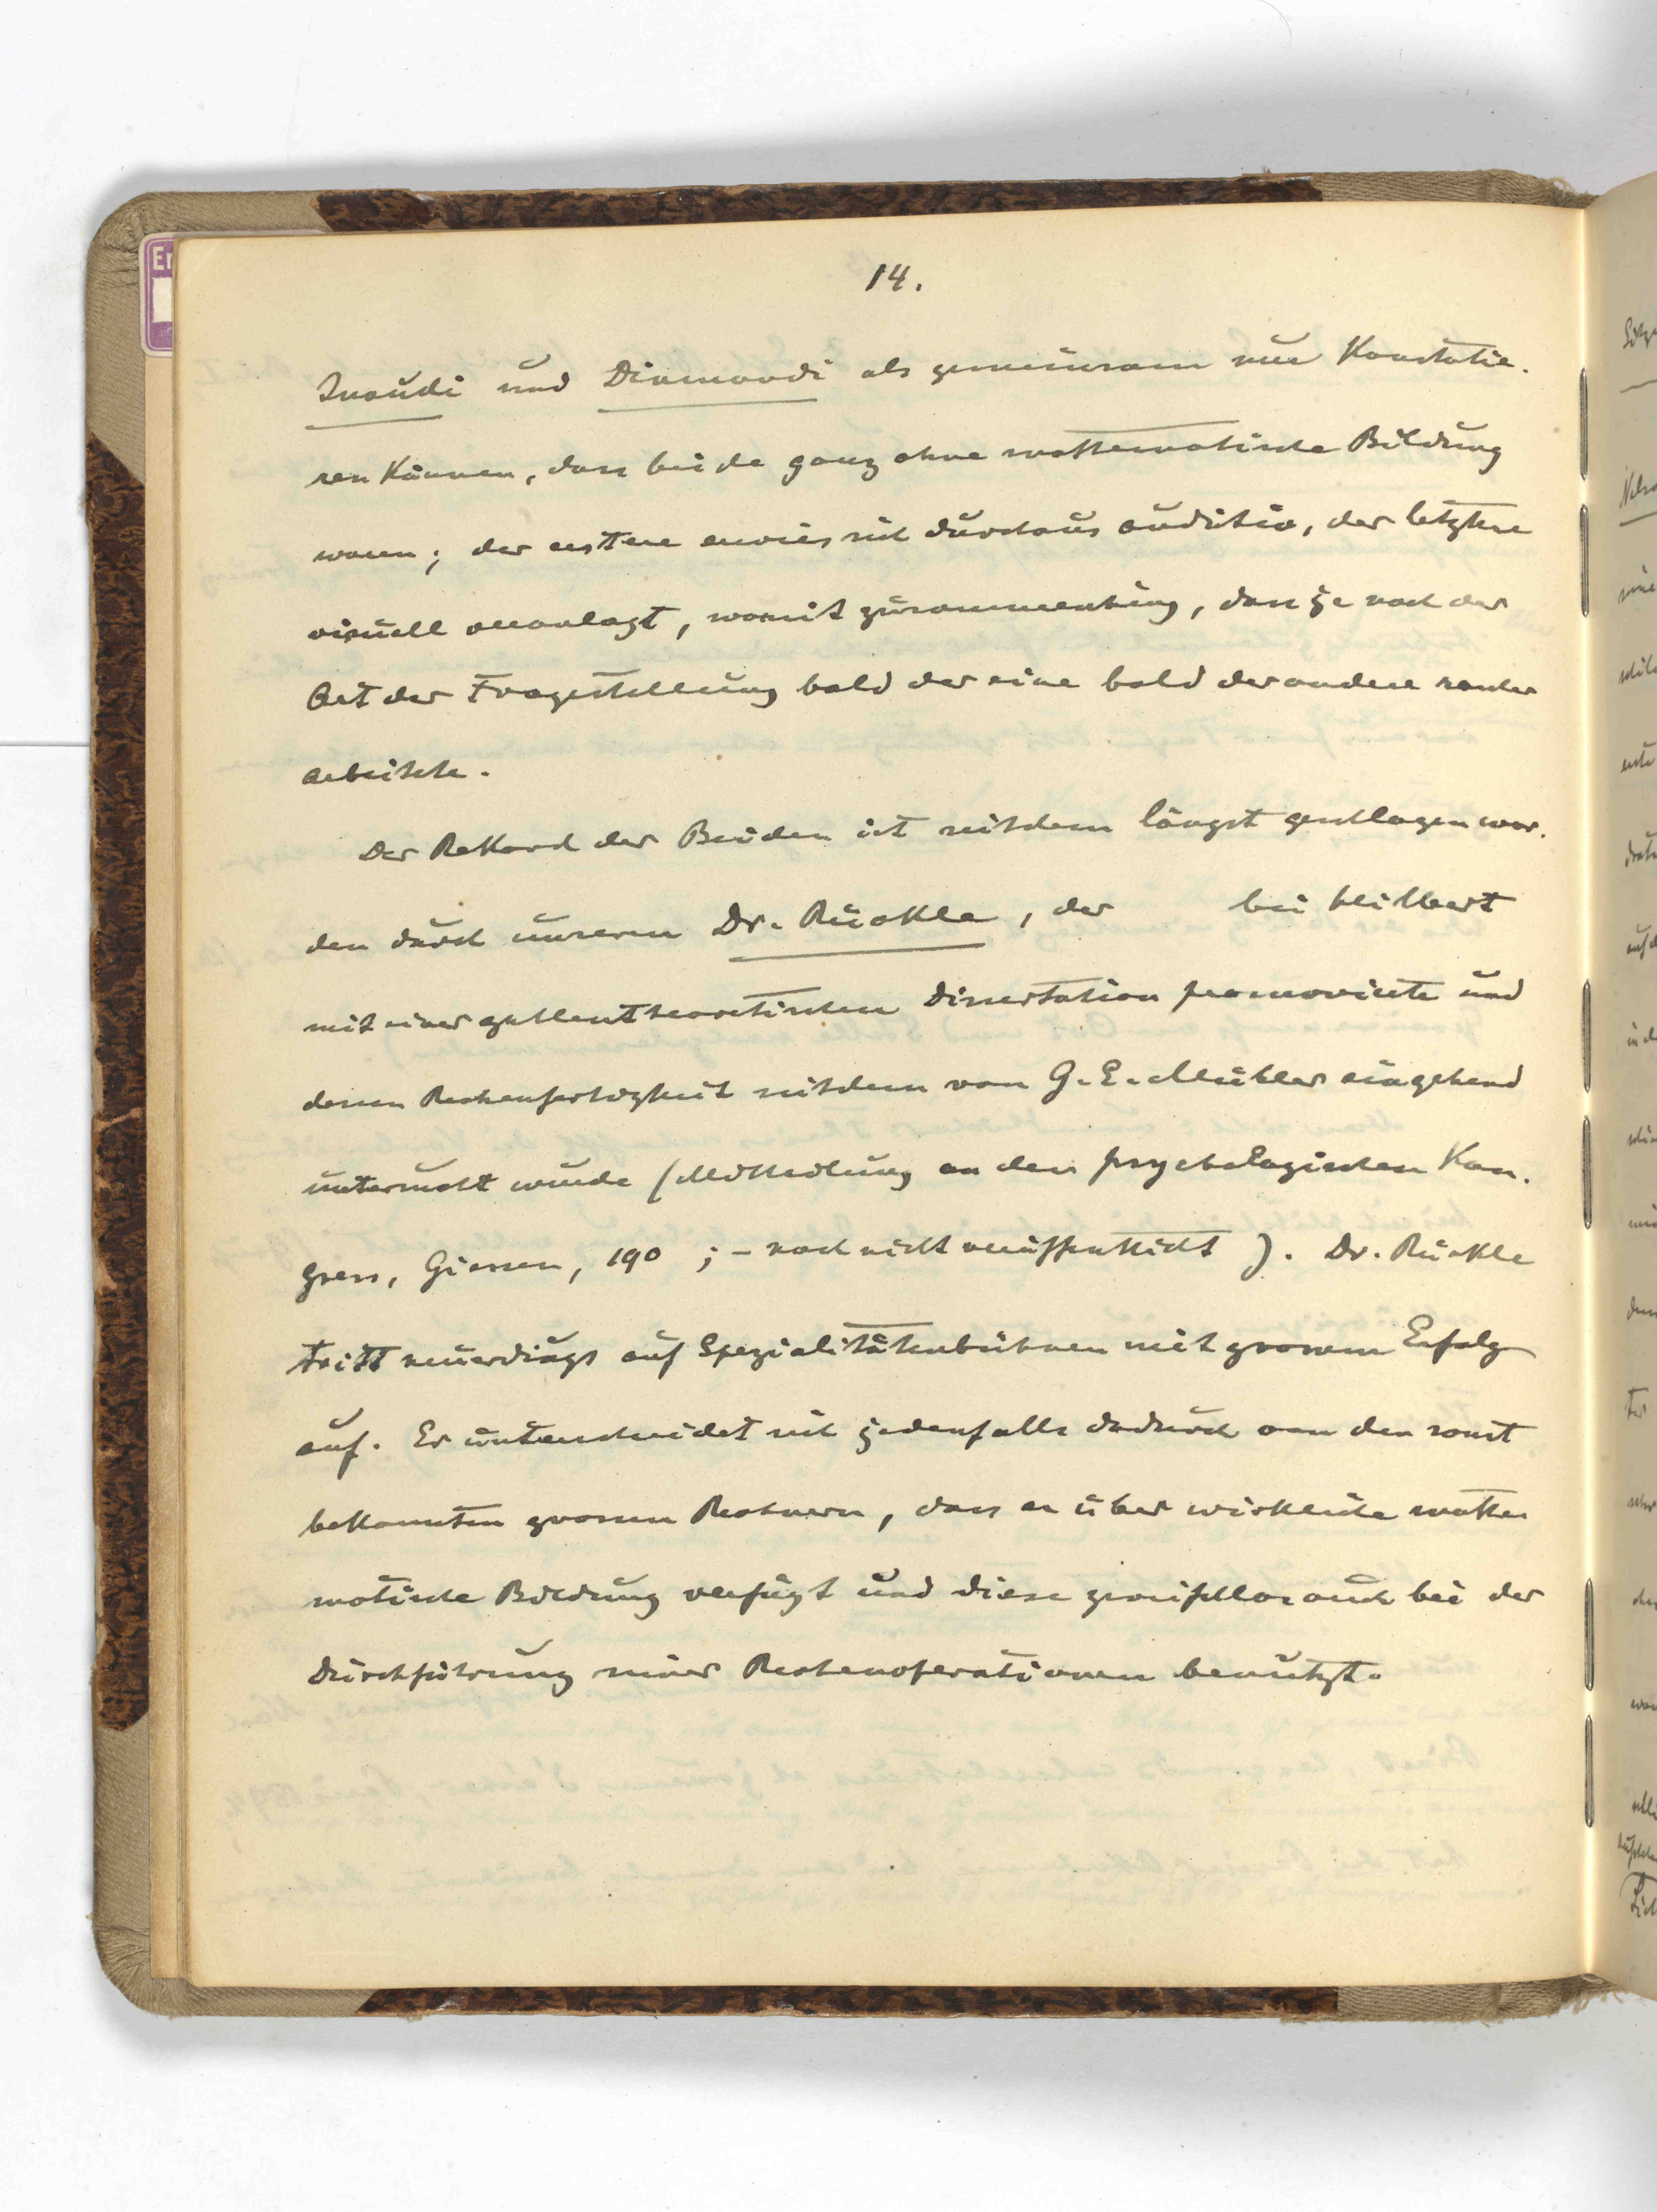 14.
Inaudi und Diamandi als gemeinsam nur Konstatie-
ren können, dass beide ganz ohne mathematische Bildung
waren; der erstere erwies sich durchaus auditiv, der letztere
visuell veranlagt, womit zusammenhing, dass je nach der
Art der Fragestellung bald der eine bald der andere rascher
arbeitete.
Der Rekord der Beiden ist seitdem längst geschlagen wor-
den durch unseren Dr. Rückle, der bei Hilbert
mit einer zahlentheoretischen Dissertation promovierte und
dessen Rechenfertigkeit seitdem von G. E. Müller eingehend
untersucht wurde (Mitteilung an den psychologischen Kon-
gress, Giessen, 190 ; – noch nicht veröffentlicht ). Dr. Rückle
tritt neuerdings auf Spezialitätenbühnen mit grossem Erfolg
auf. Er unterscheidet sich jedenfalls dadurch von den sonst
bekannten grossen Rechnern, dass er über wirkliche mathe-
matische Bildung verfügt und diese zweifellos auch bei der
Durchführung seiner Rechenoperationen benützt.